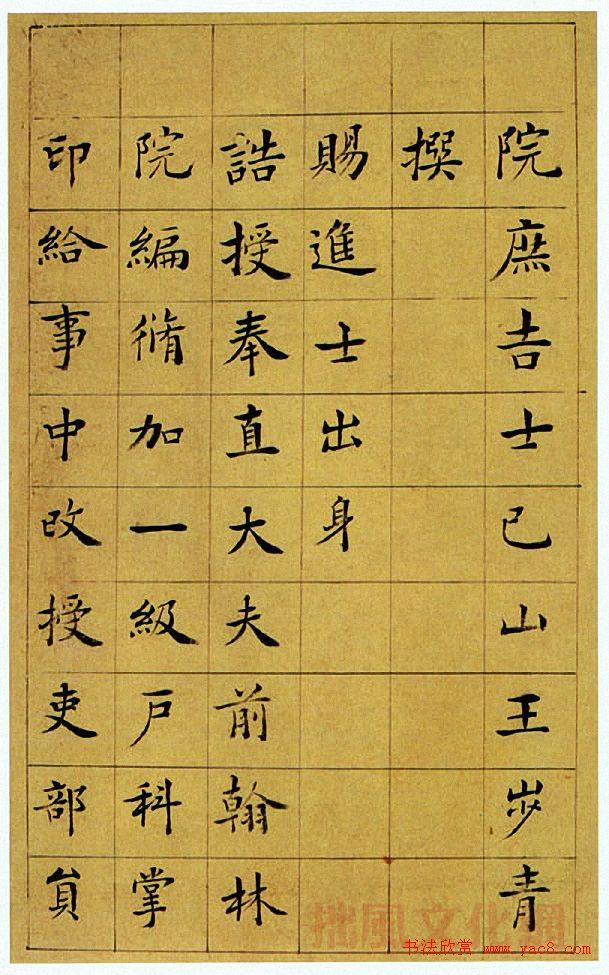 院庶吉士已山王步青
撰
賜進士出身
誥授奉直大夫前翰林
院編脩加一級戶科掌
印給事中改授吏部員
拙風文化網
书法欣赏 www.yac8.com